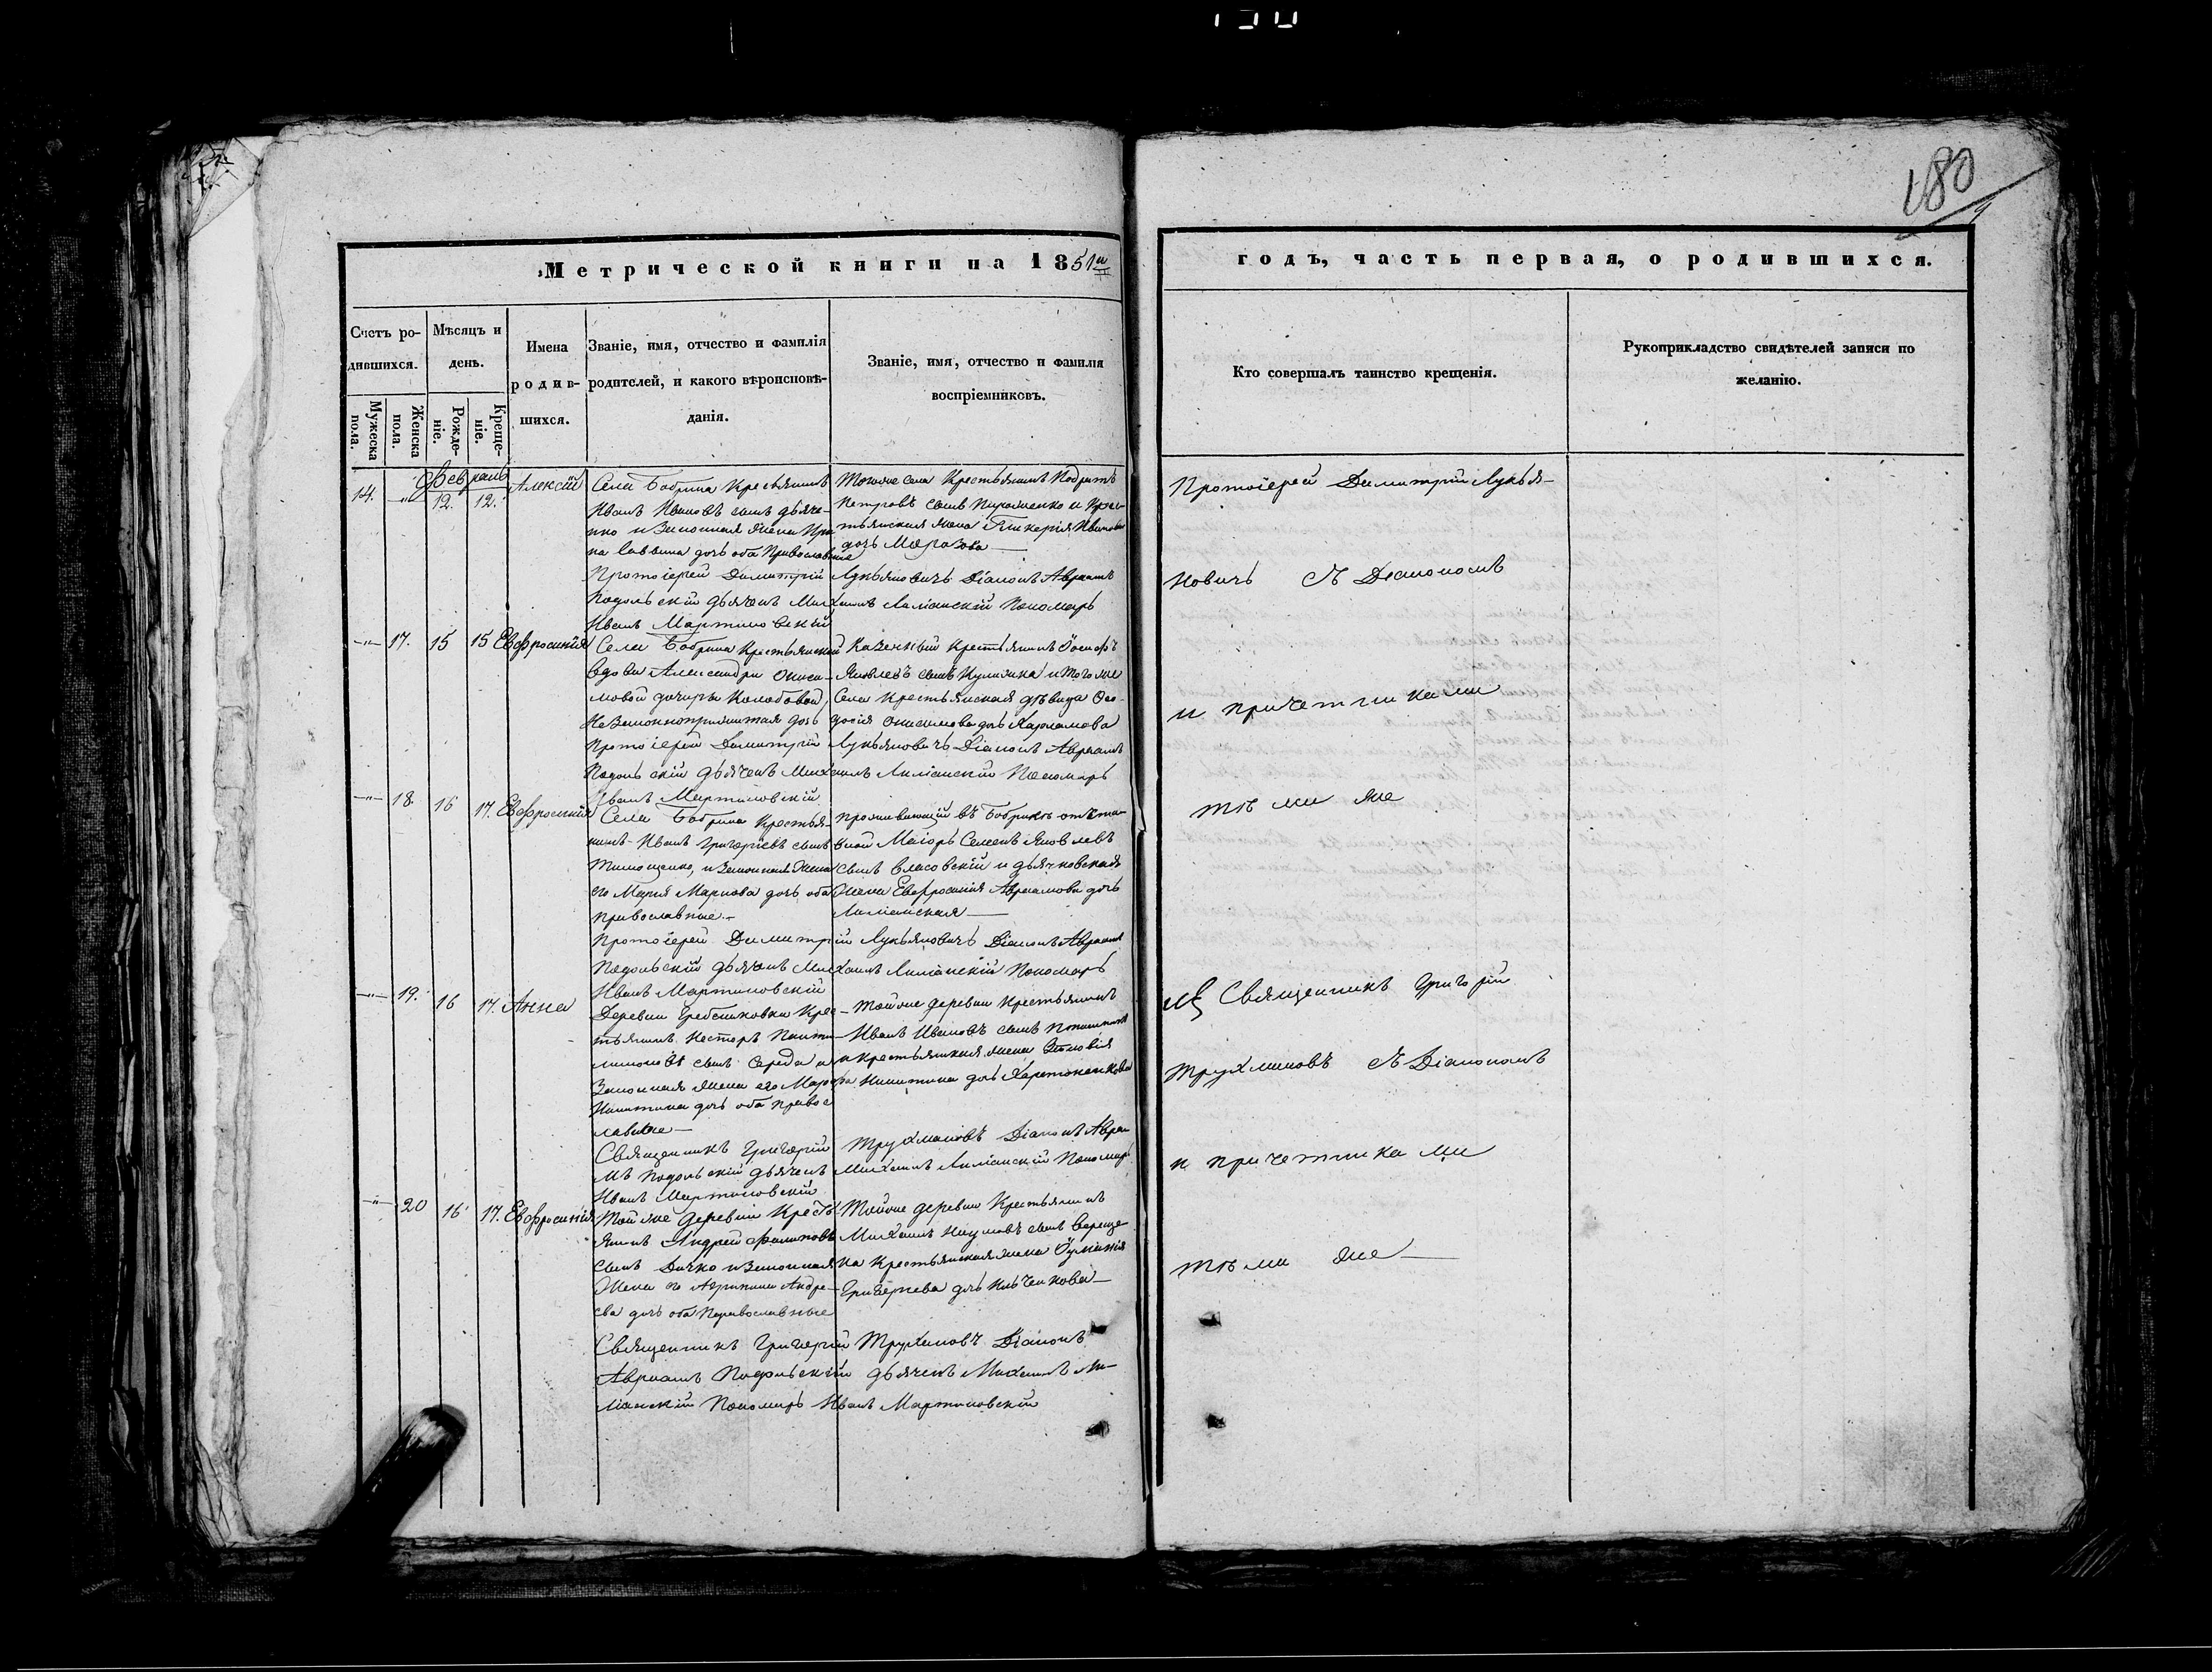 180
Метрической книги на 1851й
годъ, часть первая, о родившихся.
Счетъ ро-
дившихся.
Мужеска
пола.
Женска
пола.
Мѣсяцъ и
день.
Рожде-
ніе.
Креще-
ніе.
Имена
родив-
шихся.
Званіе, имя, отчество и фамилія
родителей, и какого вѣроисповѣ-
данія.
Званіе, имя, отчество и фамилія
воспріемниковъ.
Кто совершалъ таинство крещенія.
Рукоприкладство свидѣтелей записи по
желанію.
Февраль
14. 12. 12. Алексій
Села Бобрика Крестьянинъ
Иванъ Ивановъ сынъ Дьяче-
нко и Законная Жена Ири-
на Саввина дочь оба Православные
Тогоже Села Крестьянинъ
Петровъ сынъ и Крес-
тьянская жена Гликерія Иванова
дочь Морозова
Протоіерей Димитрій Лукьяновичь Діаконъ Авраамъ
Подольскій Дьячекъ Михаилъ Пономарь
Иванъ Мартиновскій
Протоіерей Димитрій Лукья-
новичь Съ Діакономъ
17. 15 15 Евфросинія
Села Бобрика Крестьянской
вдовы Александры Ониси-
мовой дочиры Колобовой
Незаконноприжитая дочь
Казенный Крестьянинъ Іосифъ
Яковлевъ сынъ и Тогоже
Села Крестьянская дѣвица Ѳео-
досія Онисимова дочь
Протоіерей Димитрій Лукьяновичь Діаконъ Авраамъ
Подольскій Дьячекъ Михаилъ Пономарь
Иванъ Мартиновскій
и причетниками
18. 16 17. Евфросинія
Села Бобрика Крестья-
нинъ Иванъ Григоріевъ сынъ
Тимощенко, и Законная Жена
его Марія Маркова дочь оба
православные
проживающій въ Бобрикѣ отста-
вной Маіоръ Семенъ Яковлевъ
сынъ Власовскій и дьячковская
Жена Евфросинія Авраамова дочь
Протоіерей Димитрій Лукьяновичь Діаконъ Авраамъ
Подольскій Дьячекъ Михаилъ Пономарь
Иванъ Мартиновскій
тѣми же
19. 16 17. Анна
Деревни Гребениковки Крес-
тьянинъ Несторъ
сынъ Середа и
Законная Жена его Марфа
Никитина дочь оба правос
лавные
Тойже деревни Крестьянинъ
Иванъ Ивановъ сынъ
и крестьянская жена Зіновія
Никитина дочь
Священникъ Григорій Трухмановъ Діаконъ Авраа-
мъ Подольскій Дьячекъ Михаилъ Пономарь
Иванъ Мартиновскій
Священникъ Григорій
Трухмановъ Съ Діакономъ
и причетниками
20 16 17. Евфросинія
Той же Деревни Кресть
янинъ Андрей Филиповъ
сынъ Дичко и Законная
Жена его Агрипина Андре-
ева дочь оба Православные
Тойже деревни Крестьянинъ
Михаилъ Наумовъ сынъ Вереще-
ка Крестьянская жена
Григорьева дочь
Священникъ Григорій Трухмановъ Діаконъ
Авраамъ Подольскій Дьячекъ Михаилъ
Пономарь Иванъ Мартиновскій
тѣми же